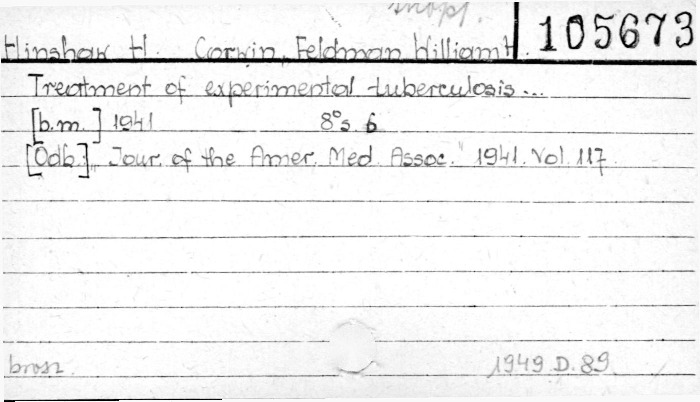 105673
Hinshaw H. Corwin, Feldman William H.
Treatment of experimental tuberculosis...
[b.m.] 1941 8° s 6
[Odb.] „Jour. of the Amer. Med. Assoc." 1941. Vol. 117.
brosz. 1949.D.89